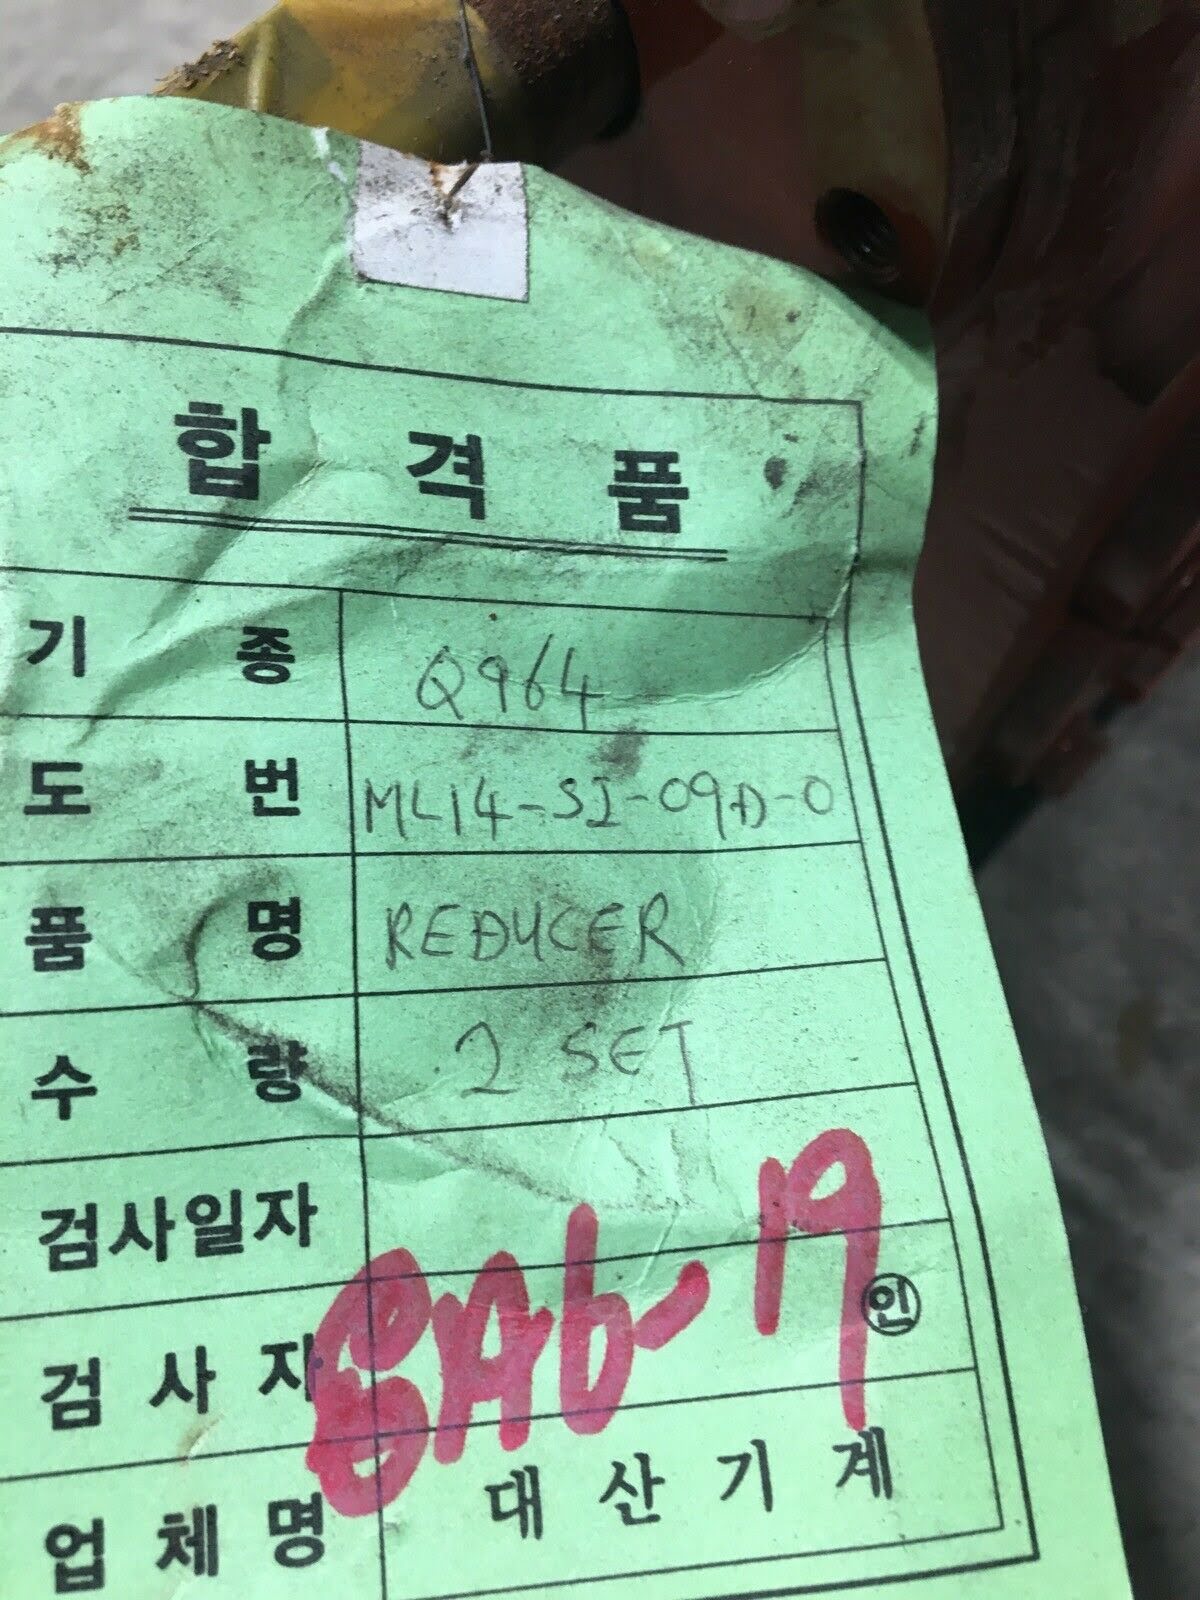 합 격 품
기 종 Q964
도 번 ML14-SI-09D-0
품 명 REDUCER
수 량 2 SET
검사일자
검 사 자 ㊞
SAb-19
업 체 명 대 산 기 계